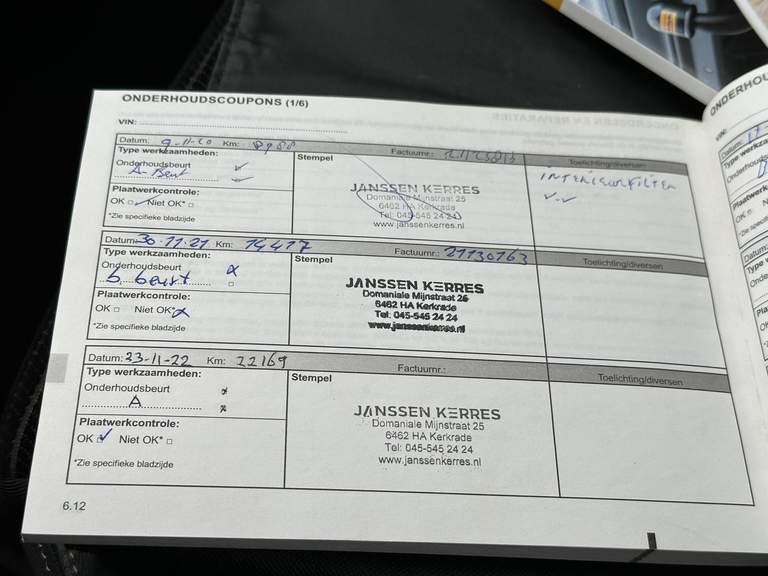 ONDERHOUDSCOUPONS (1/6)
VIN:
Datum: 9-11-20 Km: Factuurnr.:
Toelichting/diversen
Type werkzaamheden:
Onderhoudsbeurt
A-Beurt
Stempel
JANSSEN KERRES
Domaniale Mijnstraat 25
6462 HA Kerkrade
Tel: 045-545 24 24
www.janssenkerres.nl
INTERIEURFILTER
Plaatwerkcontrole:
OK Niet OK*
*Zie specifieke bladzijde
Datum: 30-11-21 Km: 14417 Factuurnr.: 21130163
Toelichting/diversen
Type werkzaamheden:
Onderhoudsbeurt
b beurt
Stempel
JANSSEN KERRES
Domaniale Mijnstraat 25
6462 HA Kerkrade
Tel: 045-545 24 24
www.janssenkerres.nl
Plaatwerkcontrole:
OK Niet OK*
*Zie specifieke bladzijde
Datum: 23-11-22 Km: 22169 Factuurnr.:
Toelichting/diversen
Type werkzaamheden:
Onderhoudsbeurt
A
Stempel
JANSSEN KERRES
Domaniale Mijnstraat 25
6462 HA Kerkrade
Tel: 045-545 24 24
www.janssenkerres.nl
Plaatwerkcontrole:
OK Niet OK*
*Zie specifieke bladzijde
6.12